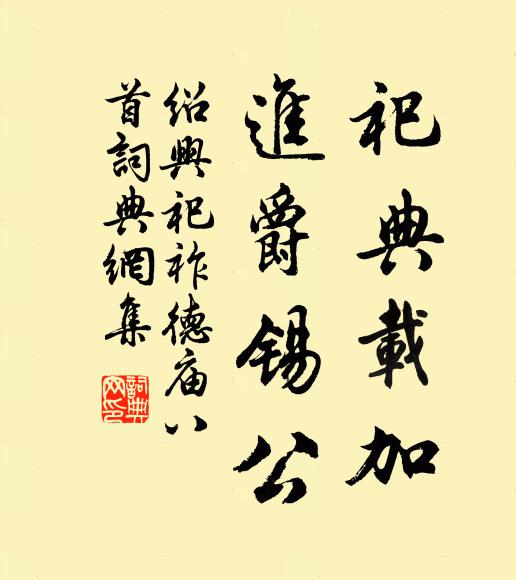 祀典載加
進爵錫公
紹興祀祚德庙八
首詞典網集
詞典
网印